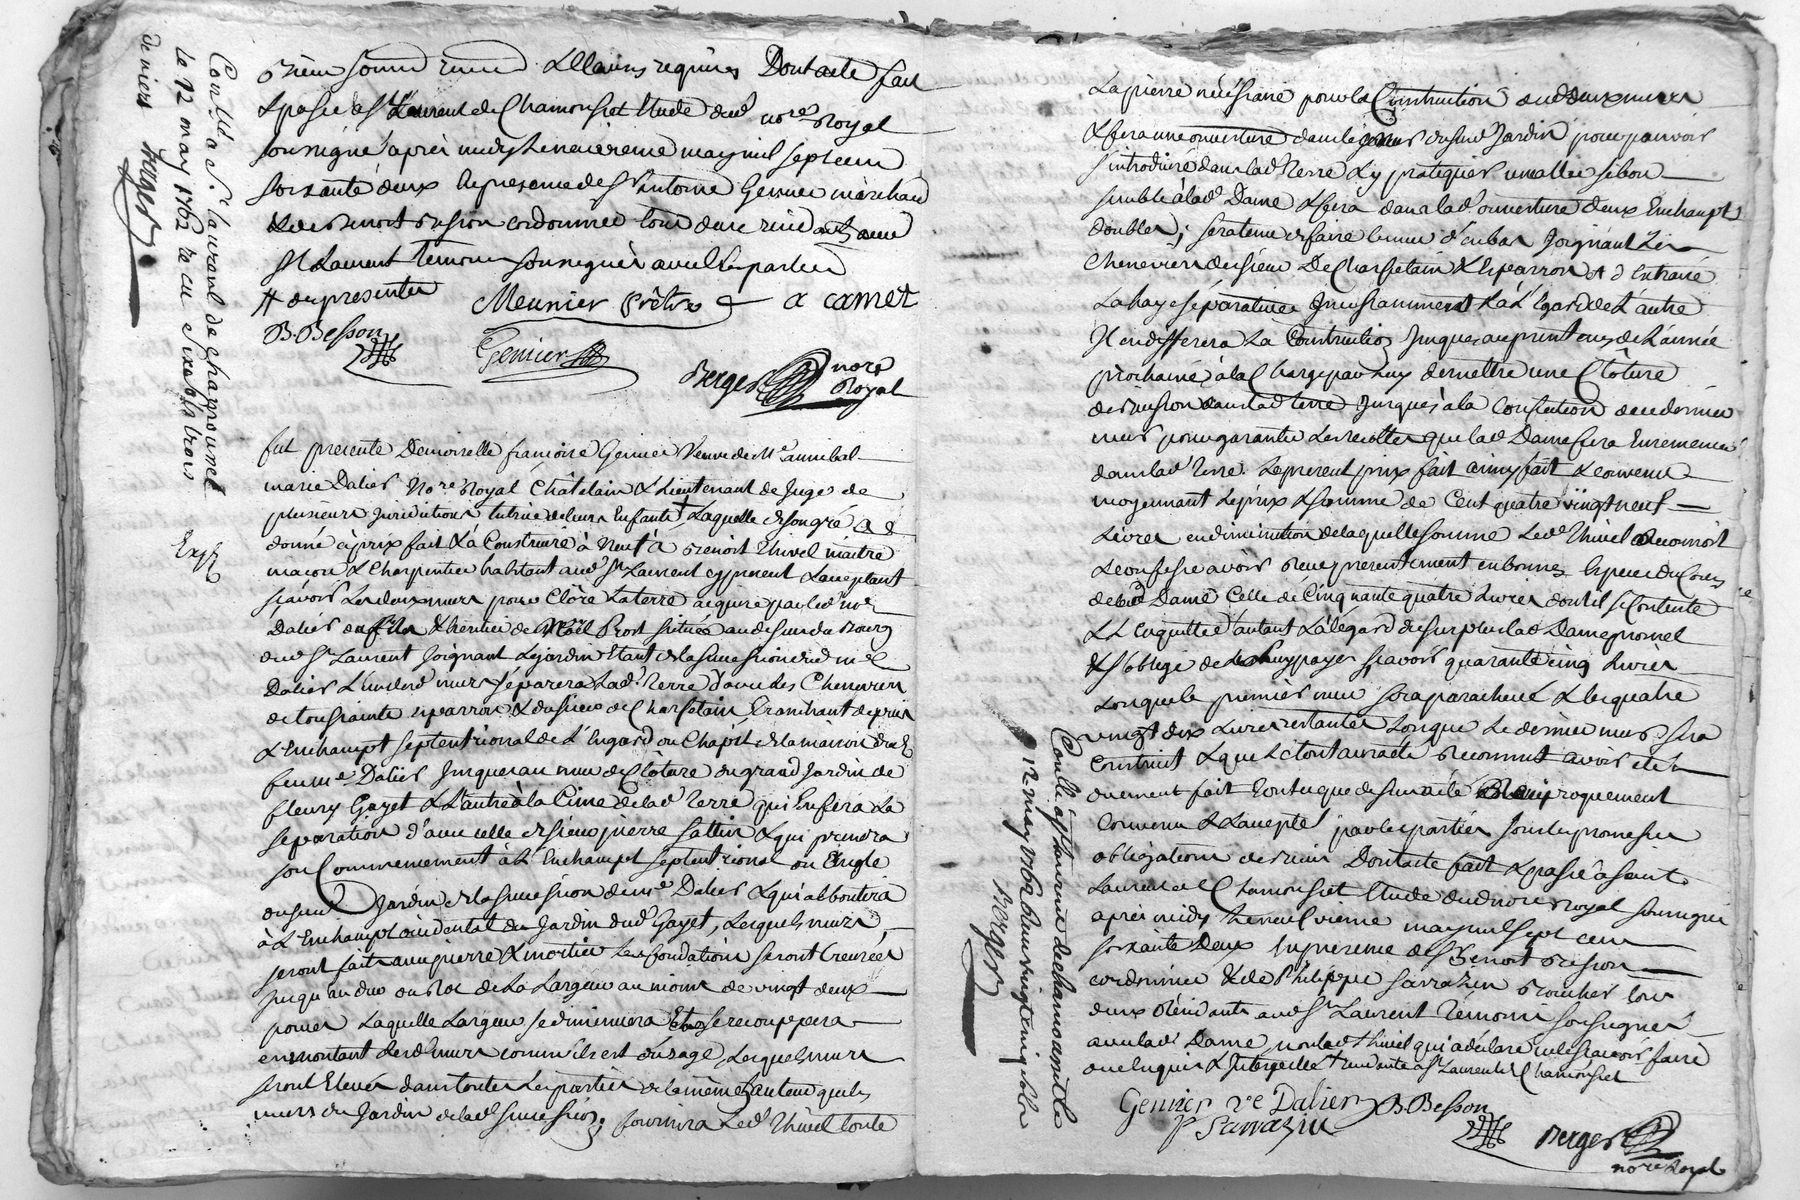 Con.lle a St laurant de chamousset
le 12 may 1762 Re cu Sixsols trois
deniers Berger
Exp.
& passé a St Laurent de Chamousset Etude dud. nore Royal
soussigné après midy le neuvieme may mil sept cent
soixante deux En presence de Sr antoine Genier marchand
& de Sr Benoit Besson cordonnier tous deux
St Laurent temoins soussignés avec les parties
Meunier Prêtre a camet
B. Besson
Genier
Berger nore
Royal
fut presente Demoiselle françoise Genier Veuve de Me annibal
marie Dalier No.re Royal Châtelain & Lieutenant de Juge de
plusieurs Juridictions tutrice de leurs Enfants Laquelle de son gré a
donné à prix fait & à Construire à Neuf à Benoit Thivel maitre
macon & Charpentier habitant aud. St Laurent cy present & acceptant
scavoir Les deux murs pour Clôre La terre acquise par led. Me
Dalier & heritier de Prost située au dessus du Bourg
dud. St Laurent Joignant Le jardin Etant de la succession dud. Me
Dalier L'un desd. murs séparera Lad. Terre d'avec Les Cheneviers
de toussainte esparron & du sieur de Charsetain
& Enchampt septentrional de L'Engard ou Chapit de la maison dud.
feu me Dalier Jusques au mur de Cloture du grand Jardin de
fleury Gayet & L'autre à la Cime de lad. Terre qui En fera La
separation d'avec celle de sieur pierre sattin & qui prendra
son Commencement à L'Enchampt septentrional ou Engle
dusud. Jardin de la succession de me Dalier & qui aboutira
à L'Enchampt occidental du Jardin dud. Gayet, Lesquels murs
seront faits avec pierre & mortier Les fondations seront Creusées
Jusqu'au dur ou Roc de La Largeur au moins de vingt deux
pouces Laquelle Largeur se diminuera & se recouppera
en montant lesd. murs comm'il est d'usage, Lesquels murs
seront Elevés dans toutes Les parties de la même hauteur que les
murs du Jardin de lad. succession; fournira Led. Thivel toute
La pierre nécéssaire pour la Construction desd. deux murs
& fera une ouverture dans le mur dusud. Jardin pour pouvoir
s'introduire dans lad. Terre & y pratiquer une allée si bon
semble à lad. Dame & fera dans lad. ouverture deux Enchampts
doubles; sera tenu de faire
Cheneviers de sieur De Charsetain & Esparron
La haye séparative Incessamment & à L'Egard de L'autre
Il en differera La Construction Jusques au printemps de L'année
prochaine, à la Charge par Luy de mettre une Cloture
de buisson dans lad. terre Jusques à la Confection de ce dernier
mur pour garantir Les recoltes que lad. Dame fera Ensemencer
dans lad. Terre. Le present prix fait ainsy fait & convenu
moyennant Le prix & somme de Cent quatre vingt neuf
Livres en diminution de laquelle somme Led. Thivel reconnoit
& confesse avoir Reçu présentement en bonnes Especes du Cours
de lad. Dame Celle de Cinquante quatre Livres dont il se Contente
& L'Enquitte d'autant & à l'égard du surplus lad. Dame promet
& s'oblige de Luy payer scavoir quarante cinq Livres
Lorsque le premier mur sera parachevé & les quatre
vingt dix Livres restantes Lorsque Le dernier mur sera
Construit
duement fait Tout ce que dessus a été Reciproquement
Convenu & accepté par les parties sous les promesses
obligations de bien Dont acte fait & passé à saint
Laurent de Chamousset Etude dud. nore Royal soussigné
après midy Le neufvieme may mil sept cent
soixante deux En presence de Sr Benoit Besson
cordonnier & de Philippe Sarrazin Boucher tous
deux Residants aud. St Laurent Témoins soussignés
avec lad. Dame non led. Thivel qui a déclaré ne le scavoir faire
de ce Enquis & Interpellé
Genier ve Dalier B. Besson
P Sarrazin
Berger
nore Royal
Con.lle a St Laurent de chamousset le
12 may 1762 Reçu vingt cinq sols
Berger